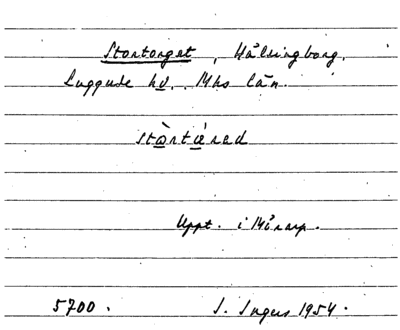 Stortorget, Hälsingborg.
Luggude hd. Mhs län.
stòrtåred
Uppt. i Mörarp.
5700.
I. Ingers 1954.